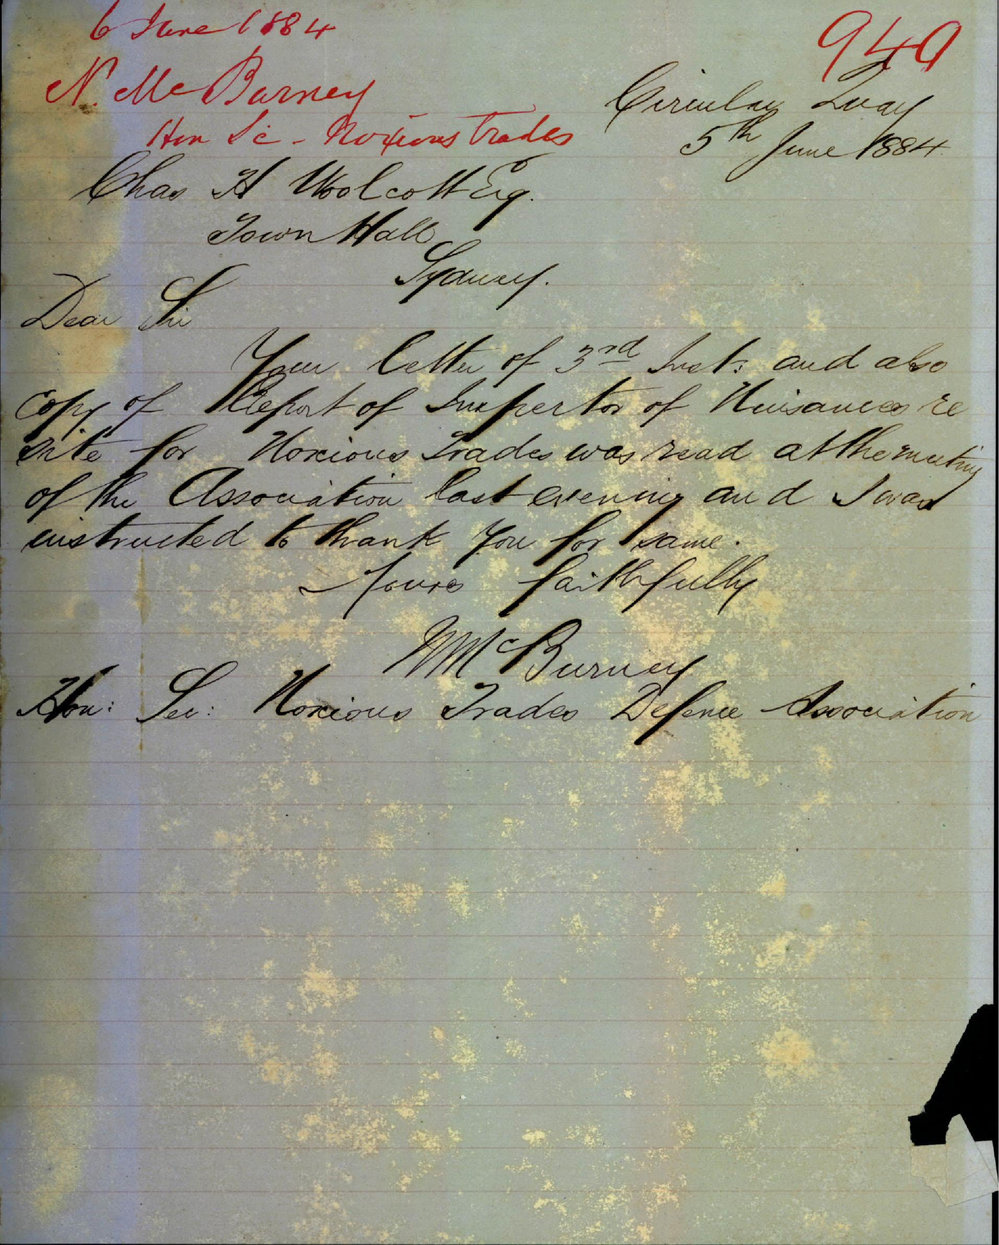 6 June 1884
949
N. McBurney
Hon Sc - Noxious trades
Circular Quay
5th June 1884
Chas H Woolcott Esq.
Town Hall
Sydney.
Dear Sir
Your letter of 3rd Inst: and also
copy of Report of Inspector of Nuisances re
site for Noxious Trades was read at the meeting
of the Association last evening and I was
instructed to thank you for same.
Yours faithfully
N McBurney
Hon: Sec: Noxious Trades Defence Association